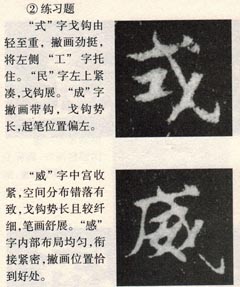 ② 练习题
“式”字戈钩由
轻至重，撇画劲挺，
将左侧“工”字托
住。“民”字左上紧
凑，戈钩展。“成”字
撇画带钩，戈钩势
长，起笔位置偏左。
式
“威”字中宫收
紧，空间分布错落有
致，戈钩势长且较纤
细，笔画舒展。“感”
字内部布局均匀，衔
接紧密，撇画位置恰
到好处。
威